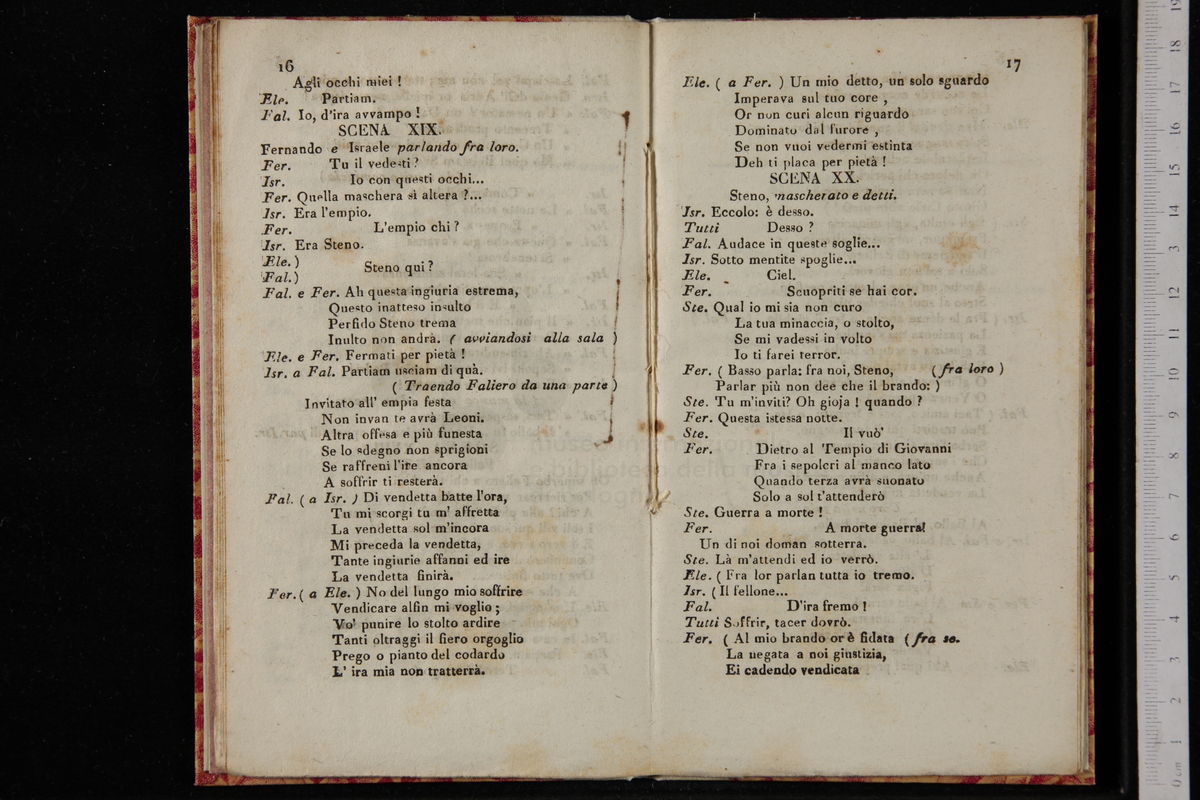 16
Agli occhi miei !
Ele. Partiam.
Fal. Io, d'ira avvampo !
SCENA XIX.
Fernando e Israele parlando fra loro.
Fer. Tu il vedesti ?
Isr. Io con questi occhi...
Fer. Quella maschera sì altera ?...
Isr. Era l'empio.
Fer. L'empio chi ?
Isr. Era Steno.
Ele. )
Steno qui ?
Fal. )
Fal. e Fer. Ah questa ingiuria estrema,
Questo inatteso insulto
Perfido Steno trema
Inulto non andrà. ( avviandosi alla sala )
Ele. e Fer. Fermati per pietà !
Isr. a Fal. Partiam usciam di quà.
( Traendo Faliero da una parte )
Invitato all' empia festa
Non invan te avrà Leoni.
Altra offesa e più funesta
Se lo sdegno non sprigioni
Se raffreni l'ire ancora
A soffrir ti resterà.
Fal. ( a Isr. ) Di vendetta batte l'ora,
Tu mi scorgi tu m' affretta
La vendetta sol m'incora
Mi preceda la vendetta,
Tante ingiurie affanni ed ire
La vendetta finirà.
Fer. ( a Ele. ) No del lungo mio soffrire
Vendicare alfin mi voglio ;
Vo' punire lo stolto ardire
Tanti oltraggi il fiero orgoglio
Prego o pianto del codardo
L' ira mia non tratterrà.
17
Ele. ( a Fer. ) Un mio detto, un solo sguardo
Imperava sul tuo core ,
Or non curi alcun riguardo
Dominato dal furore ,
Se non vuoi vedermi estinta
Deh ti placa per pietà !
SCENA XX.
Steno, mascherato e detti.
Isr. Eccolo: è desso.
Tutti Desso ?
Fal. Audace in queste soglie...
Isr. Sotto mentite spoglie...
Ele. Ciel.
Fer. Scuopriti se hai cor.
Ste. Qual io mi sia non curo
La tua minaccia, o stolto,
Se mi vadessi in volto
Io ti farei terror.
Fer. ( Basso parla: fra noi, Steno, (fra loro )
Parlar più non dee che il brando: )
Ste. Tu m'inviti? Oh gioja ! quando ?
Fer. Questa istessa notte.
Ste. Il vuò'
Fer. Dietro al Tempio di Giovanni
Fra i sepolcri al manco lato
Quando terza avrà suonato
Solo a sol t'attenderò
Ste. Guerra a morte !
Fer. A morte guerra!
Un di noi doman sotterra.
Ste. Là m'attendi ed io verrò.
Ele. ( Fra lor parlan tutta io tremo.
Isr. ( Il fellone...
Fal. D'ira fremo !
Tutti Soffrir, tacer dovrò.
Fer. ( Al mio brando or è fidata (fra se.
La negata a noi giustizia,
Ei cadendo vendicata